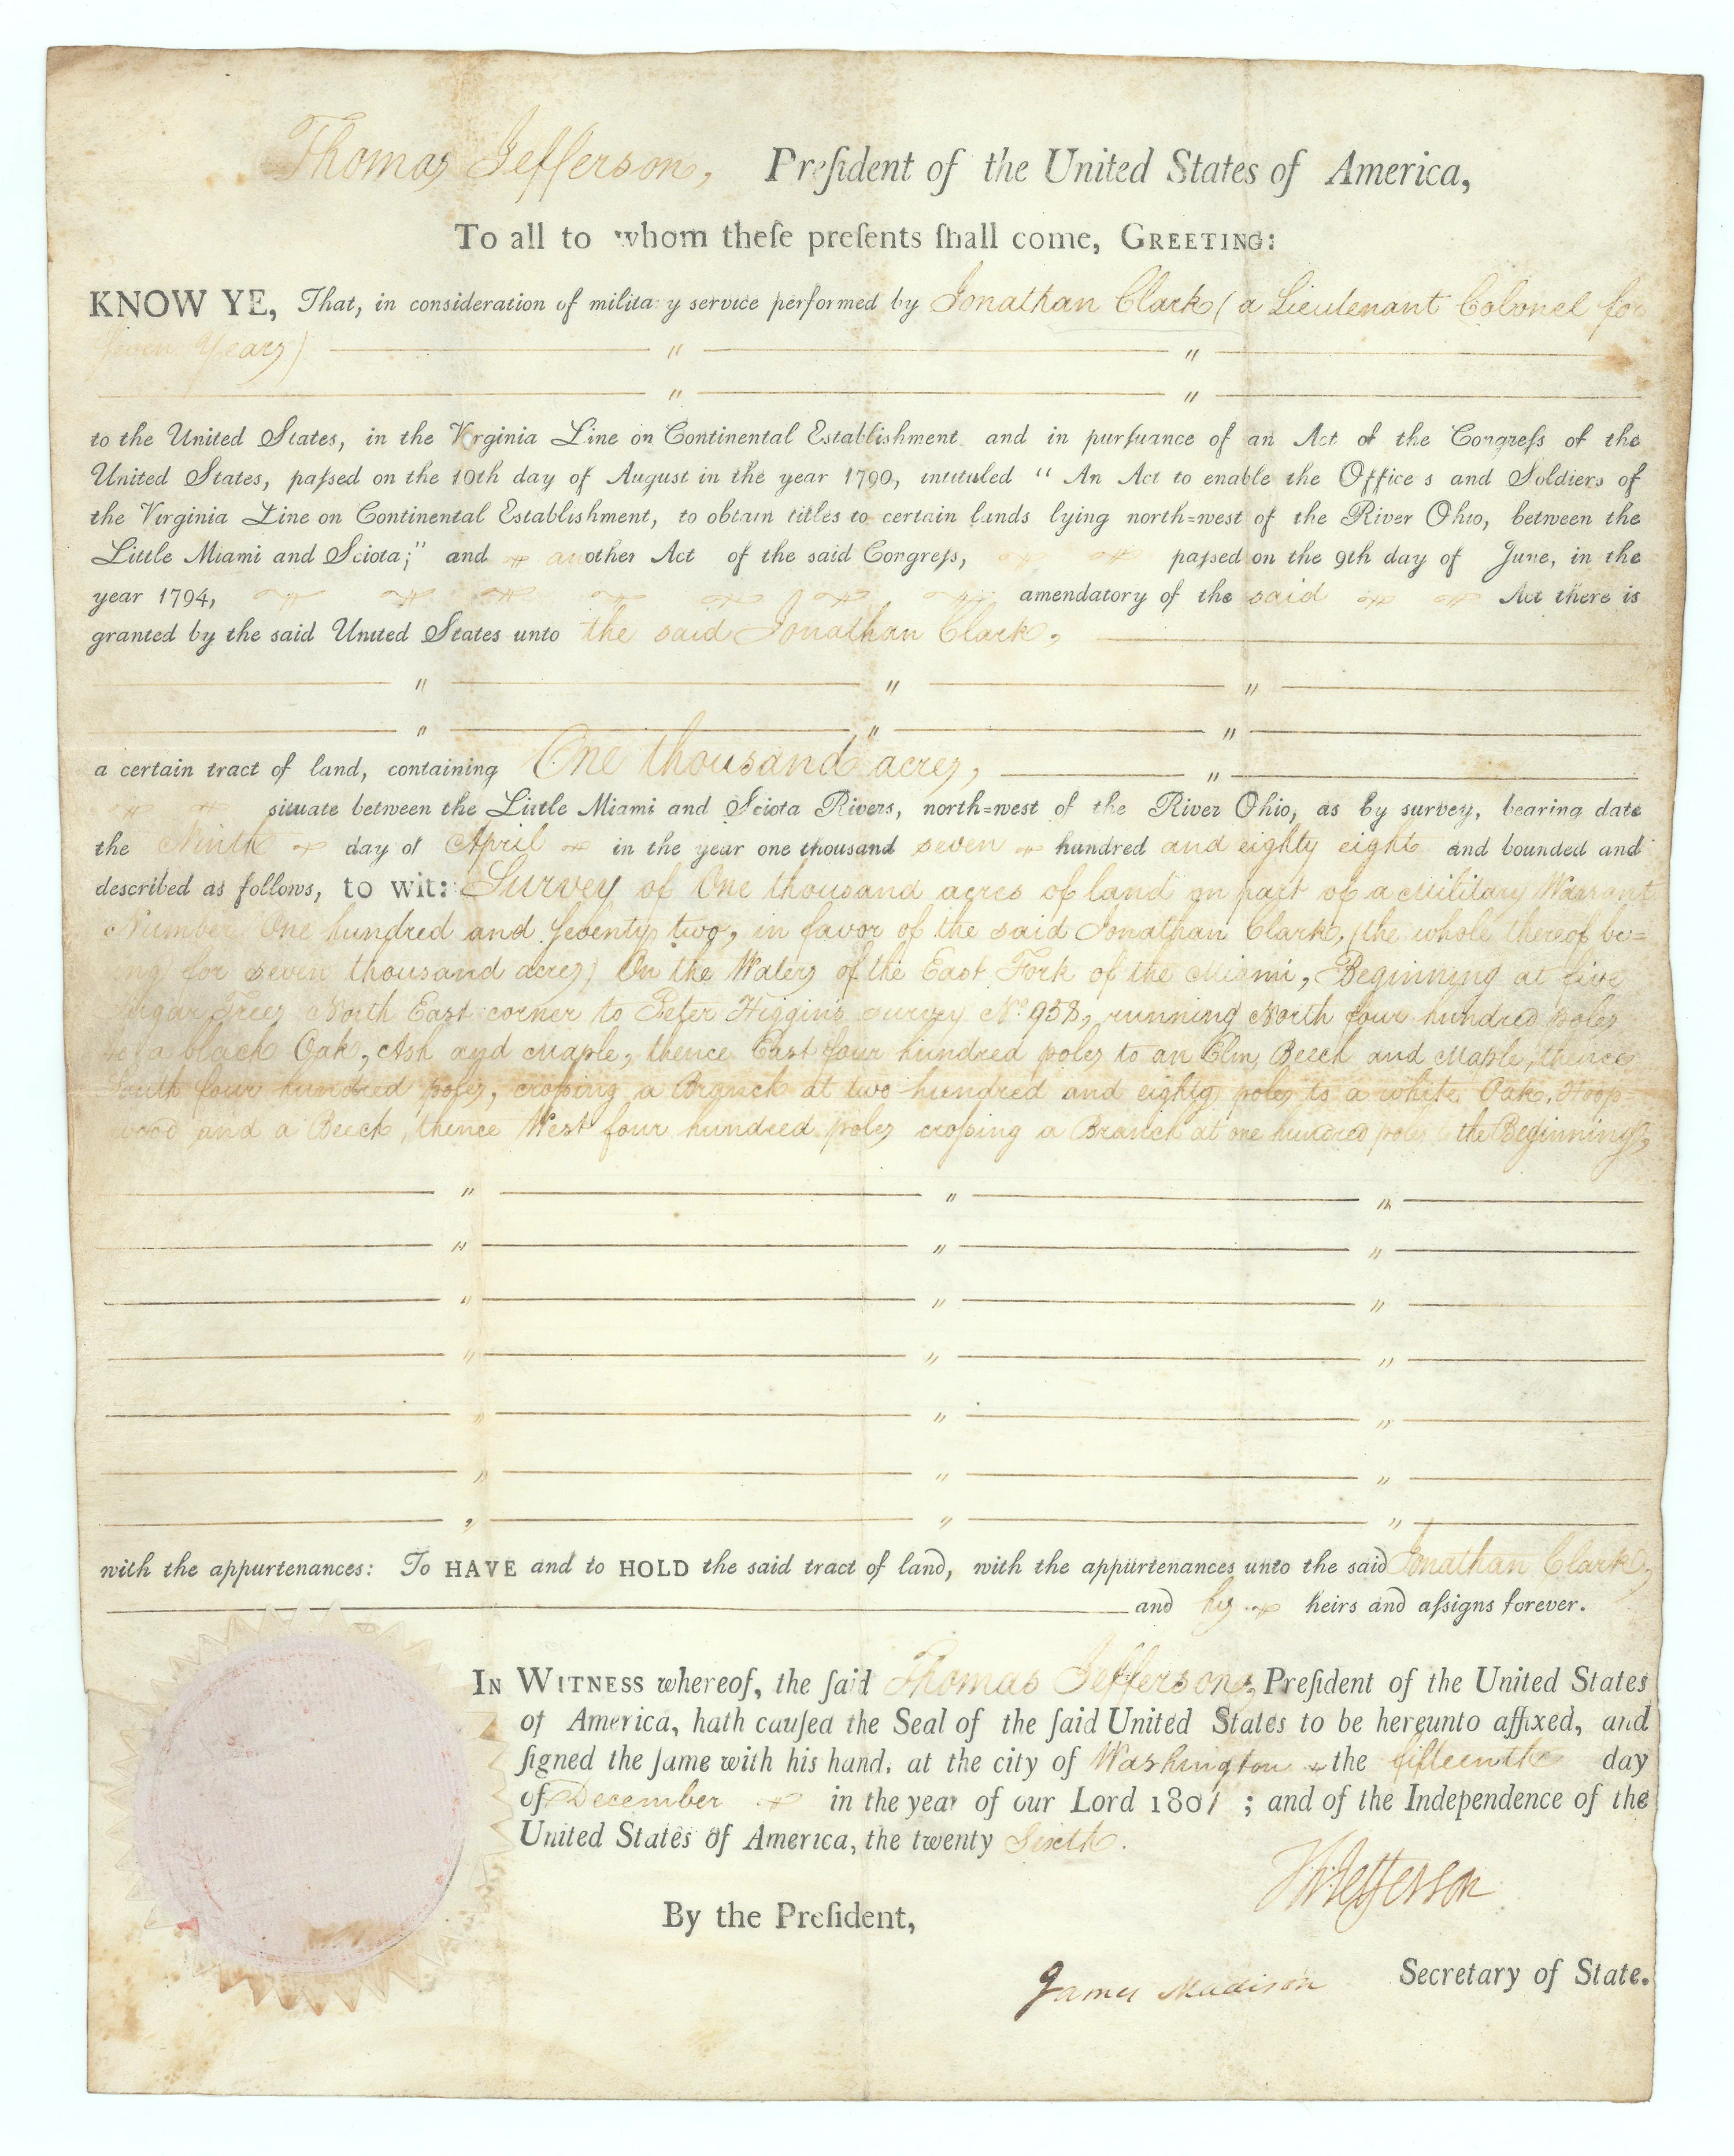 Thomas Jefferson, Preſident of the United States of America,
To all to whom theſe preſents ſhall come, GREETING:
KNOW YE, That, in consideration of military service performed by Jonathan Clark (a Lieutenant Colonel for
seven Years)
to the United States, in the Virginia Line on Continental Establishment and in purſuance of an Act of the Congreſs of the
United States, paſsed on the 10th day of August in the year 1790, intituled “ An Act to enable the Officers and Soldiers of
the Virginia Line on Continental Establishment, to obtain titles to certain lands lying north=west of the River Ohio, between the
Little Miami and Sciota;” and another Act of the said Congreſs, paſsed on the 9th day of June, in the
year 1794, amendatory of the said Act there is
granted by the said United States unto the said Jonathan Clark,
a certain tract of land, containing One thousand acres,
situate between the Little Miami and Sciota Rivers, north=west of the River Ohio, as by survey, bearing date
the Ninth day of April in the year one thousand seven hundred and eighty eight and bounded and
described as follows, to wit: Survey of One thousand acres of land on part of a Military Warrant
Number One hundred and Seventy two, in favor of the said Jonathan Clark, (the whole thereof be=
ing for seven thousand acres) On the Waters of the East Fork of the Miami, Beginning at five
Sugar Trees North East corner to Peter Higgins survey No. 938, running North four hundred poles
to a black Oak, Ash and Maple, thence East four hundred poles to an Elm, Beech and Maple, thence
South four hundred poles, croſsing a Branch at two hundred and eighty poles to a white Oak, Hoop=
wood and a Beech, thence West four hundred poles croſsing a Branch at one hundred poles to the Beginning,
with the appurtenances: To HAVE and to HOLD the said tract of land, with the appurtenances unto the said Jonathan Clark,
and his heirs and aſsigns forever.
IN WITNESS whereof, the ſaid Thomas Jefferson, Preſident of the United States
of America, hath cauſed the Seal of the ſaid United States to be hereunto affixed, and
ſigned the ſame with his hand, at the city of Washington the fifteenth day
of December in the year of our Lord 1801 ; and of the Independence of the
United States of America, the twenty Sixth.
Th: Jefferson
By the Preſident,
James Madison Secretary of State.